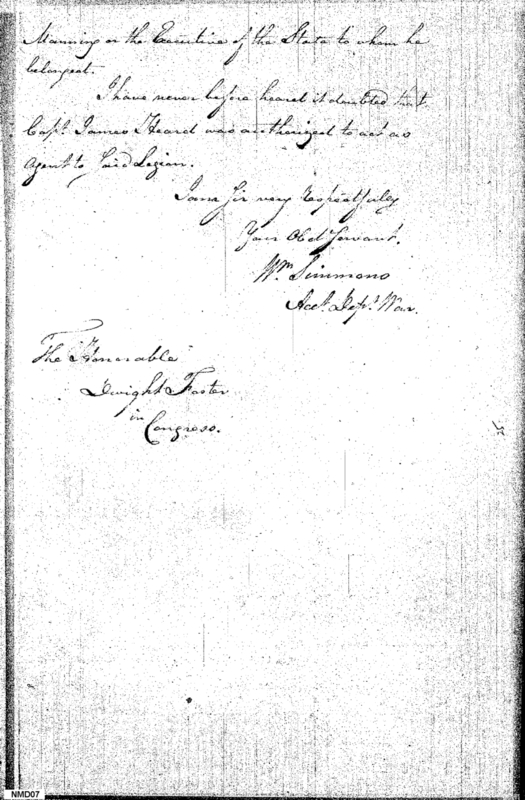 Manning or the Executive of the State to whom he
belonged.
I have never before heard it doubted that
Capt. James Heard was authorized to act as
Agent to said Legion.
I am Sir very Respectfully
Your Obed Servant.
Wm Simmons
Acct. Dept. War.
The Honorable
Dwight Foster
in
Congress.
NMD07